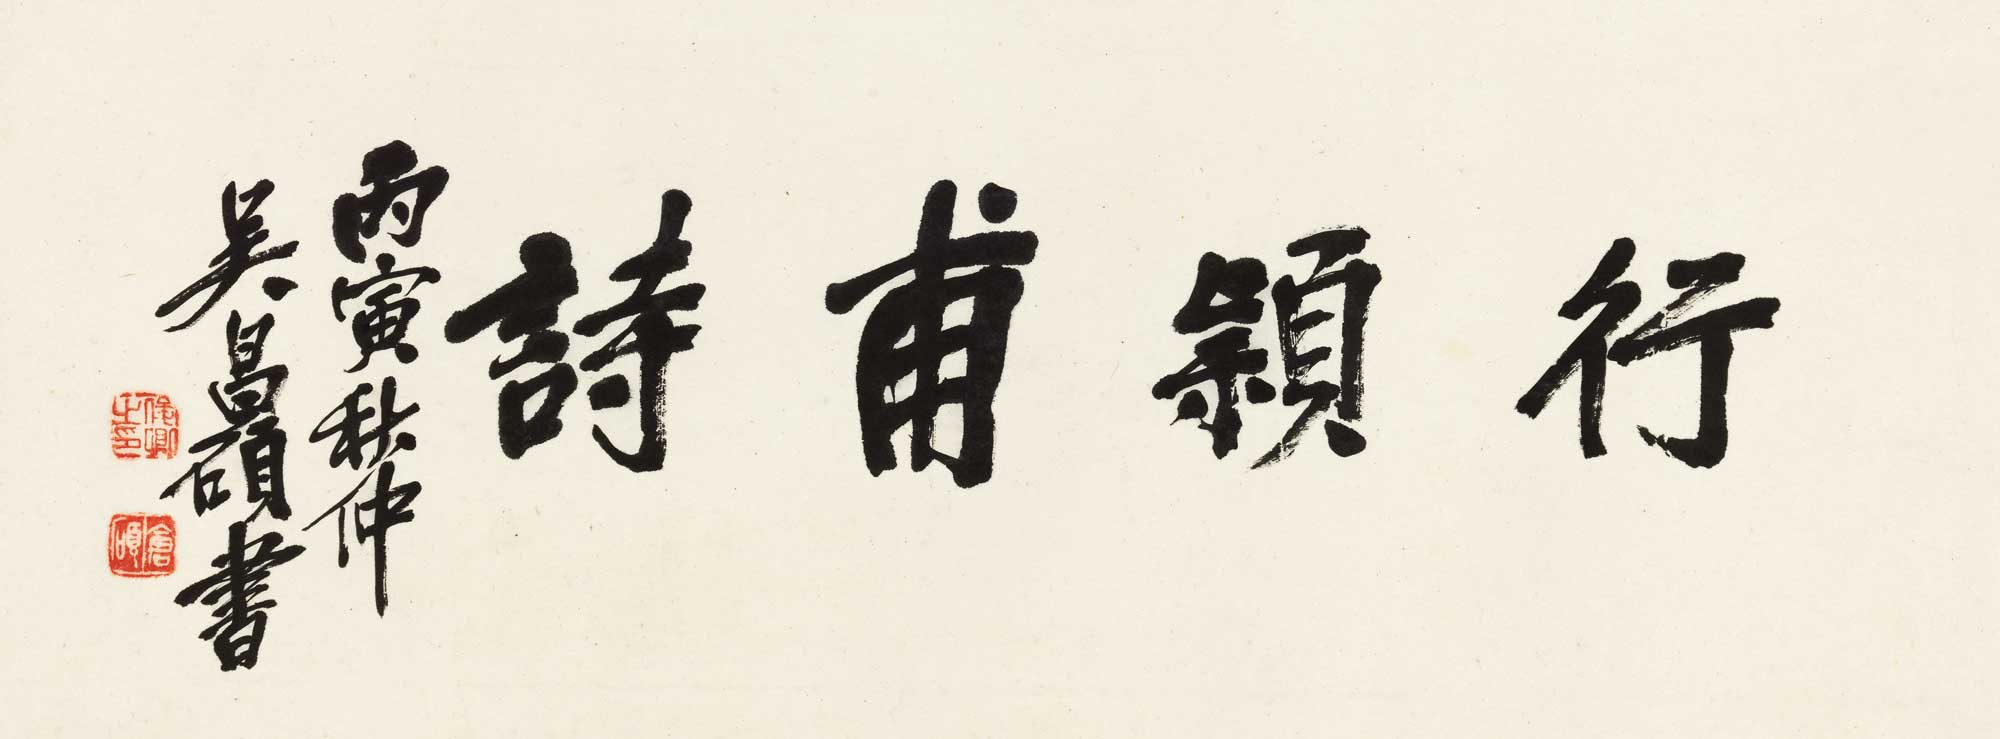 行穎甫詩
丙寅秋仲
吴昌碩書
俊卿之印
倉碩